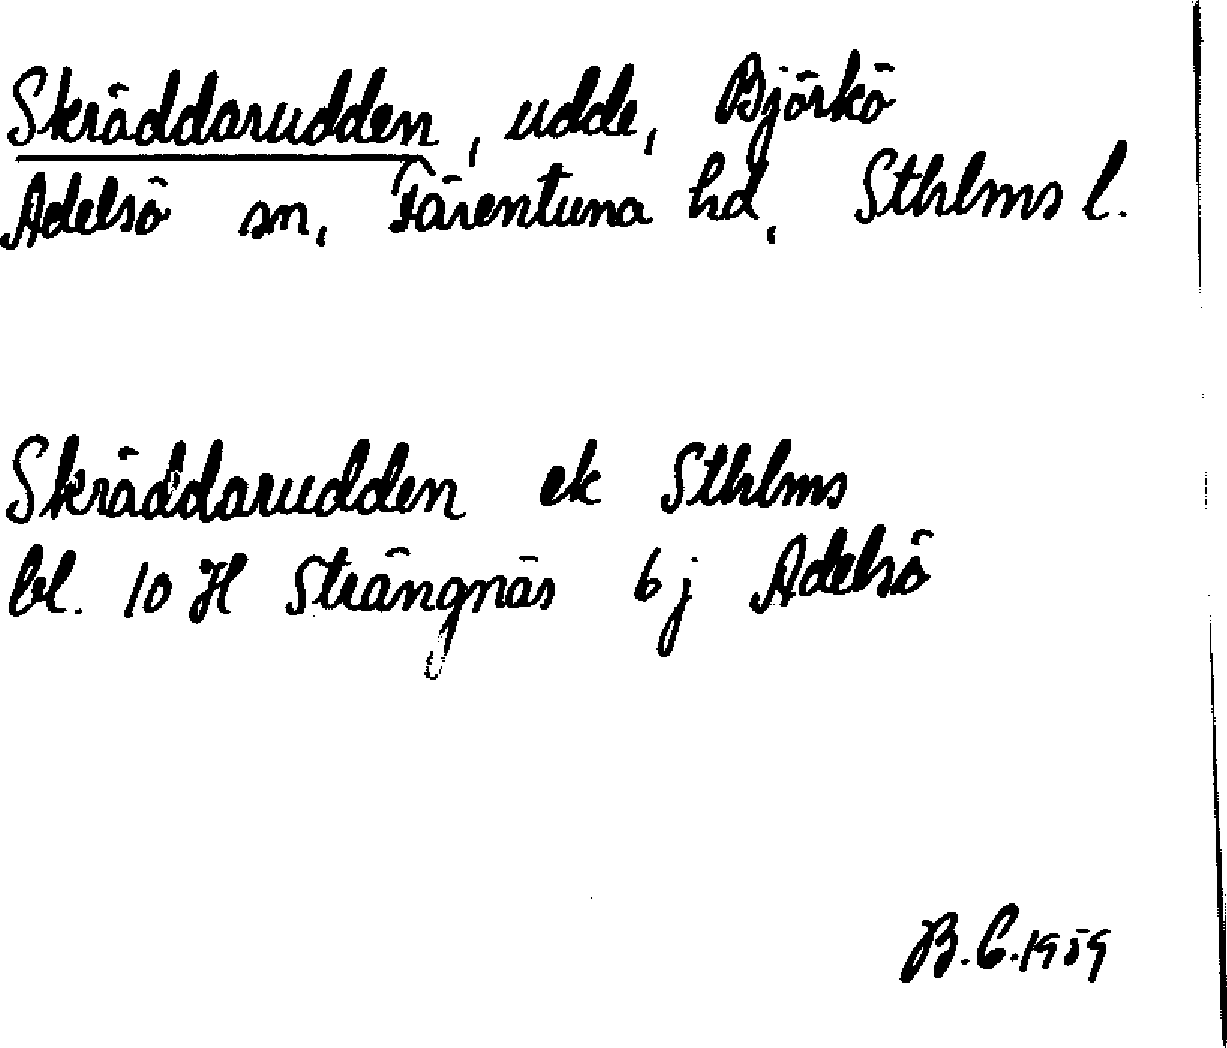 Skräddarudden, udde, Björkö
Adelsö sn, Färentuna hd, Sthlms l.
Skräddarudden ek Sthlms
bl. 10 H Strängnäs 6 j Adelsö
B.C. 1959